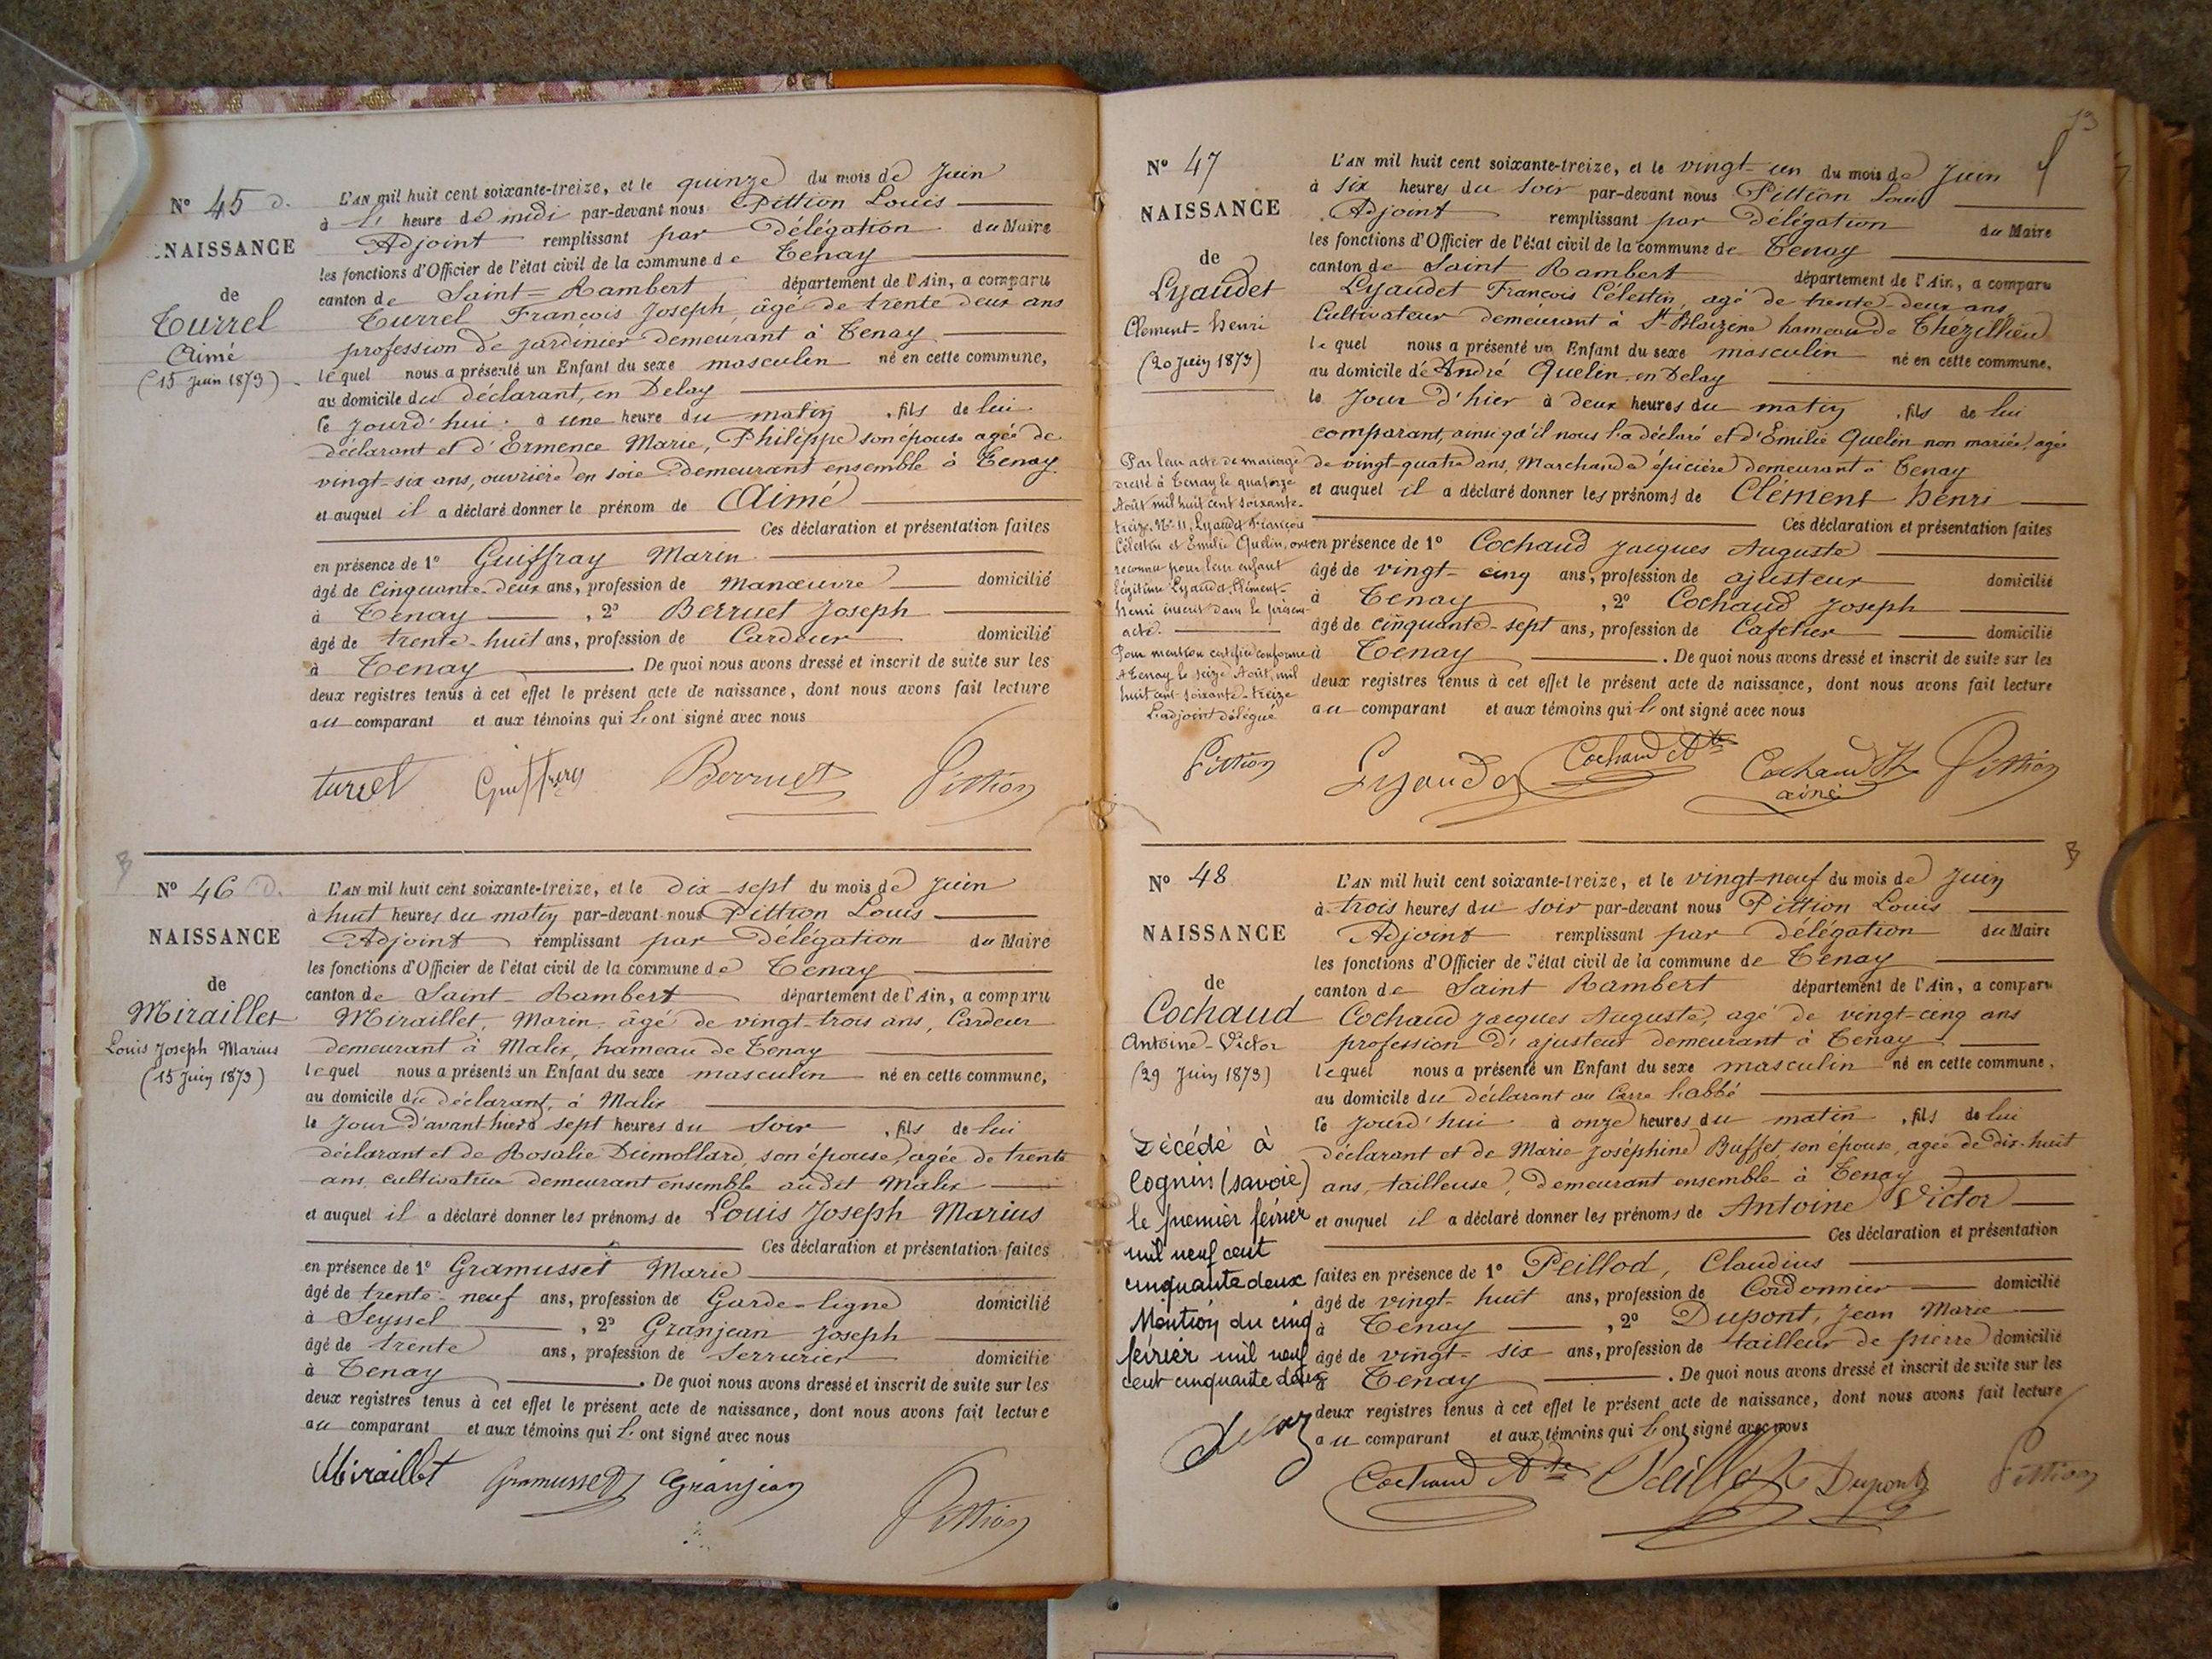 Nº 45 d.
NAISSANCE
de
Turrel
Aimé
(15 Juin 1873)
L'AN mil huit cent soixante-treize, et le quinze du mois de Juin
à heure de midi par-devant nous Pittion Louis
Adjoint remplissant par Délégation du Maire
les fonctions d'Officier de l'état civil de la commune de Tenay
canton de Saint-Rambert département de l'Ain, a comparu
Turrel François Joseph, âgé de trente deux ans
profession de jardinier demeurant à Tenay
lequel nous a présenté un Enfant du sexe masculin né en cette commune,
au domicile du déclarant, en Delay
le jourd'hui à une heure du matin, fils de lui
déclarant et d'Ermence Marie, Philippe son épouse agée de
vingt-six ans, ouvrière en soie demeurant ensemble à Tenay
et auquel il a déclaré donner le prénom de Aimé
Ces déclaration et présentation faites
en présence de 1º Guiffray Marin
âgé de cinquante-deux ans, profession de Manœuvre domicilié
à Tenay, 2º Berruet Joseph
âgé de trente-huit ans, profession de Cardeur domicilié
à Tenay. De quoi nous avons dressé et inscrit de suite sur les
deux registres tenus à cet effet le présent acte de naissance, dont nous avons fait lecture
au comparant et aux témoins qui l'ont signé avec nous
turrel Guiffrey Berruet Pittion
B
Nº 46 d.
NAISSANCE
de
Miraillet
Louis Joseph Marius
(15 Juin 1873)
L'AN mil huit cent soixante-treize, et le dix-sept du mois de Juin
à huit heures du matin par-devant nous Pittion Louis
Adjoint remplissant par Délégation du Maire
les fonctions d'Officier de l'état civil de la commune de Tenay
canton de Saint-Rambert département de l'Ain, a comparu
Miraillet, Marin âgé de vingt-trois ans, Cardeur
demeurant à Malix, hameau de Tenay
lequel nous a présenté un Enfant du sexe masculin né en cette commune,
au domicile du déclarant, à Malix
le Jour d'avant hier à sept heures du soir, fils de lui
déclarant et de Rosalie Dumollard son épouse, agée de trente
ans, cultivatrice demeurant ensemble audit Malix
et auquel il a déclaré donner les prénoms de Louis Joseph Marius
Ces déclaration et présentation faites
en présence de 1º Gramusset Marie
âgé de trente-neuf ans, profession de Garde-ligne domicilié
à Seyssel, 2º Granjean Joseph
âgé de trente ans, profession de Serrurier domicilié
à Tenay. De quoi nous avons dressé et inscrit de suite sur les
deux registres tenus à cet effet le présent acte de naissance, dont nous avons fait lecture
au comparant et aux témoins qui l'ont signé avec nous
Miraillet Gramusset Granjean
Pittion
13
Nº 47
NAISSANCE
de
Lyaudet
Clement-henri
(20 Juin 1873)
L'AN mil huit cent soixante-treize, et le vingt-un du mois de Juin
à six heures du soir par-devant nous Pittion Louis
Adjoint remplissant par Délégation du Maire
les fonctions d'Officier de l'état civil de la commune de Tenay
canton de Saint Rambert département de l'Ain, a comparu
Lyaudet François Célestin, agé de trente-deux ans,
Cultivateur demeurant à St-Blaizine hameau de Thézillieu
lequel nous a présenté un Enfant du sexe masculin né en cette commune,
au domicile de André Quelin en Delay
le Jour d'hier à deux heures du matin, fils de lui
comparant, ainsi qu'il nous l'a déclaré et d'Emilie Quelin non mariée, agée
de vingt-quatre ans, Marchande épicière demeurant à Tenay
et auquel il a déclaré donner les prénoms de Clément henri
Ces déclaration et présentation faites
en présence de 1º Cochaud Jacques Auguste
âgé de vingt-cinq ans, profession de ajusteur domicilié
à Tenay, 2º Cochaud Joseph
âgé de cinquante-sept ans, profession de Cafetier domicilié
à Tenay. De quoi nous avons dressé et inscrit de suite sur les
deux registres tenus à cet effet le présent acte de naissance, dont nous avons fait lecture
au comparant et aux témoins qui l'ont signé avec nous
Par leur acte de mariage
dressé à Tenay le quatorze
Août mil huit cent soixante-
treize, Nº 11, Lyaudet François
Célestin et Emilie Quelin, ont
reconnu pour leur enfant
légitime Lyaudet, Clément-
henri inscrit dans le présent
acte.
Pour mention certifiée conforme
A Tenay le seize Août, mil
huit cent-soixante-treize
L'adjoint délégué
Pittion Lyaudet Cochaud Ate Cochaud Jh Pittion
ainé
B
Nº 48
NAISSANCE
de
Cochaud
Antoine-Victor
(29 Juin 1873)
L'AN mil huit cent soixante-treize, et le vingt-neuf du mois de Juin
à trois heures du soir par-devant nous Pittion Louis
Adjoint remplissant par délégation du Maire
les fonctions d'Officier de l'état civil de la commune de Tenay
canton de Saint Rambert département de l'Ain, a comparu
Cochaud Jacques Auguste, agé de vingt-cinq ans
profession d'ajusteur demeurant à Tenay
lequel nous a présenté un Enfant du sexe masculin né en cette commune,
au domicile du déclarant au
le jourd'hui à onze heures du matin, fils de lui
déclarant et de Marie Joséphine Buffet, son épouse, agée de dix-huit
ans, tailleuse, demeurant ensemble à Tenay
et auquel il a déclaré donner les prénoms de Antoine Victor
Ces déclaration et présentation
faites en présence de 1º Peillod, Claudius
âgé de vingt-huit ans, profession de Cordonnier domicilié
à Tenay, 2º Dupont, Jean Marie
âgé de vingt-six ans, profession de tailleur de pierre domicilié
à Tenay. De quoi nous avons dressé et inscrit de suite sur les
deux registres tenus à cet effet le présent acte de naissance, dont nous avons fait lecture
au comparant et aux témoins qui l'ont signé avec nous
Décédé à
Cognin (savoie)
le premier février
mil neuf cent
cinquante deux
Mention du cinq
février mil neuf
cent cinquante deux
Cochaud Ate Peillod Dupont Pittion